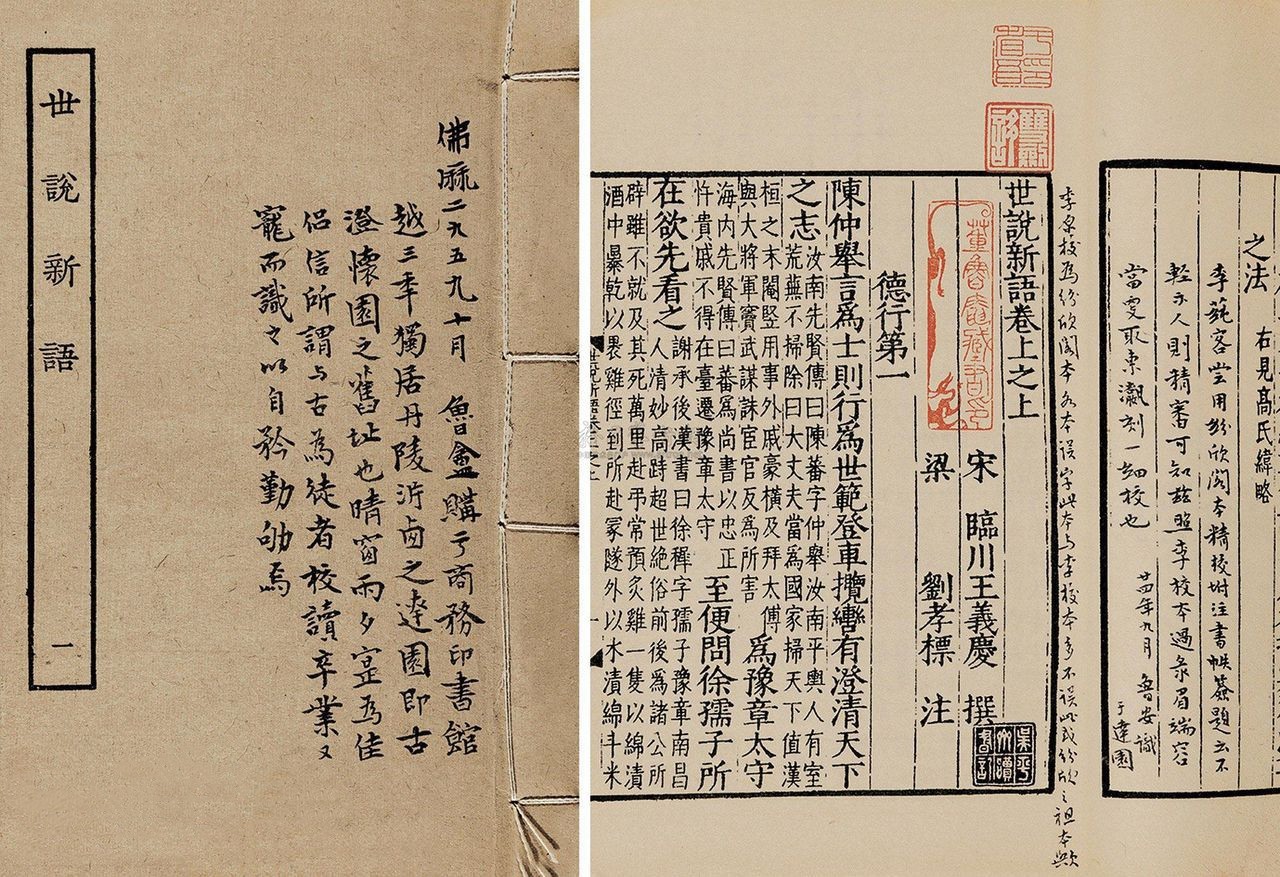 丗說新語 一
佛曆二九五九十月 魯盦購于商務印書館
越三年獨居丹陵沜卤之達園即古
澄懷園之舊址也晴窗雨夕寔爲佳
侣信所謂与古爲徒者校讀卒業又
寵而識之以自矜勤劬焉
之法 右見高氏緯略
李蒓客嘗用紛欣閣本精校坿注書帙簽題云不
輕示人則精審可知玆照李校本過彔眉端容
當更取東瀛刻一細校也
廿四年九月 魯安識
于達園
李原校爲紛欣閣本 本誤字此本与李校本多不誤此或紛欣之祖本歟
世說新語卷上之上
宋 臨川王義慶 撰
梁 劉孝標 注
德行第一
陳仲舉言爲士則行爲世範登車攬轡有澄清天下
之志 汝南先賢傳曰陳蕃字仲舉汝南平輿人有室
荒蕪不掃除曰大丈夫當爲國家掃天下值漢
桓之末閹豎用事外戚豪橫及拜太傅
與大將軍竇武謀誅宦官反爲所害 爲豫章太守
海内先賢傳曰蕃爲尚書以忠正
忤貴戚不得在臺遷豫章太守 至便問徐孺子所
在欲先看之 謝承後漢書曰徐穉字孺子豫章南昌
人清妙高跱超世絶俗前後爲諸公所
辟雖不就及其死萬里赴弔常預炙雞一隻以綿漬
酒中暴乾以裹雞徑到所赴冢隧外以水漬綿斗米
于省吾印
雙劍誃
董魯盦藏書印